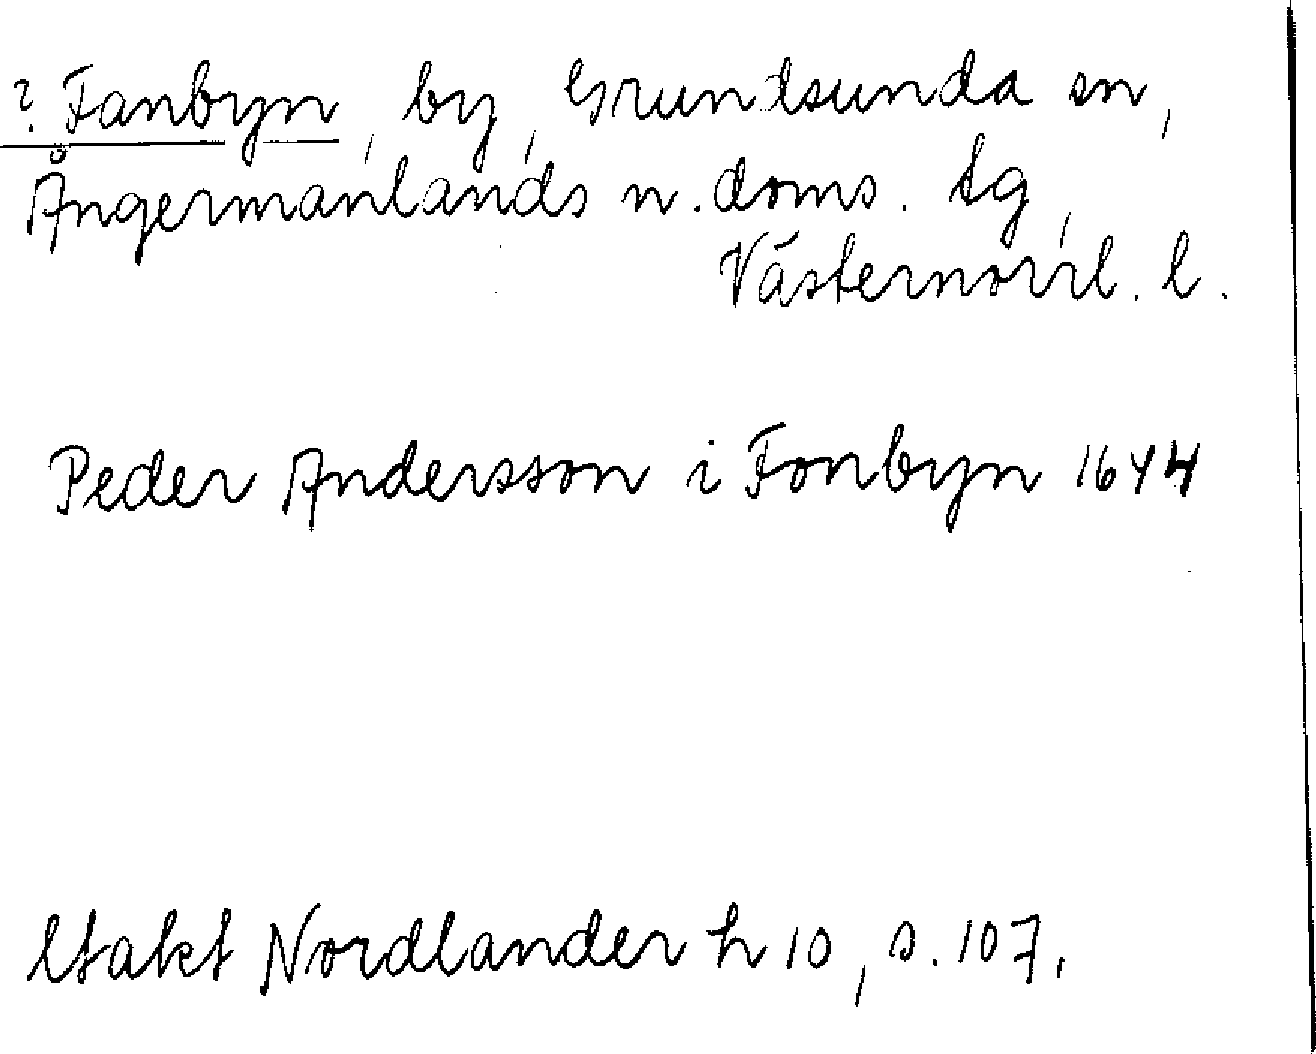 ? Fanbyn, by, Grundsunda sn,
Ångermanlands n. doms. tg,
Västernorrl. l.
Peder Andersson i Fonbyn 1644
Utakt Nordlander h 10, s. 107.